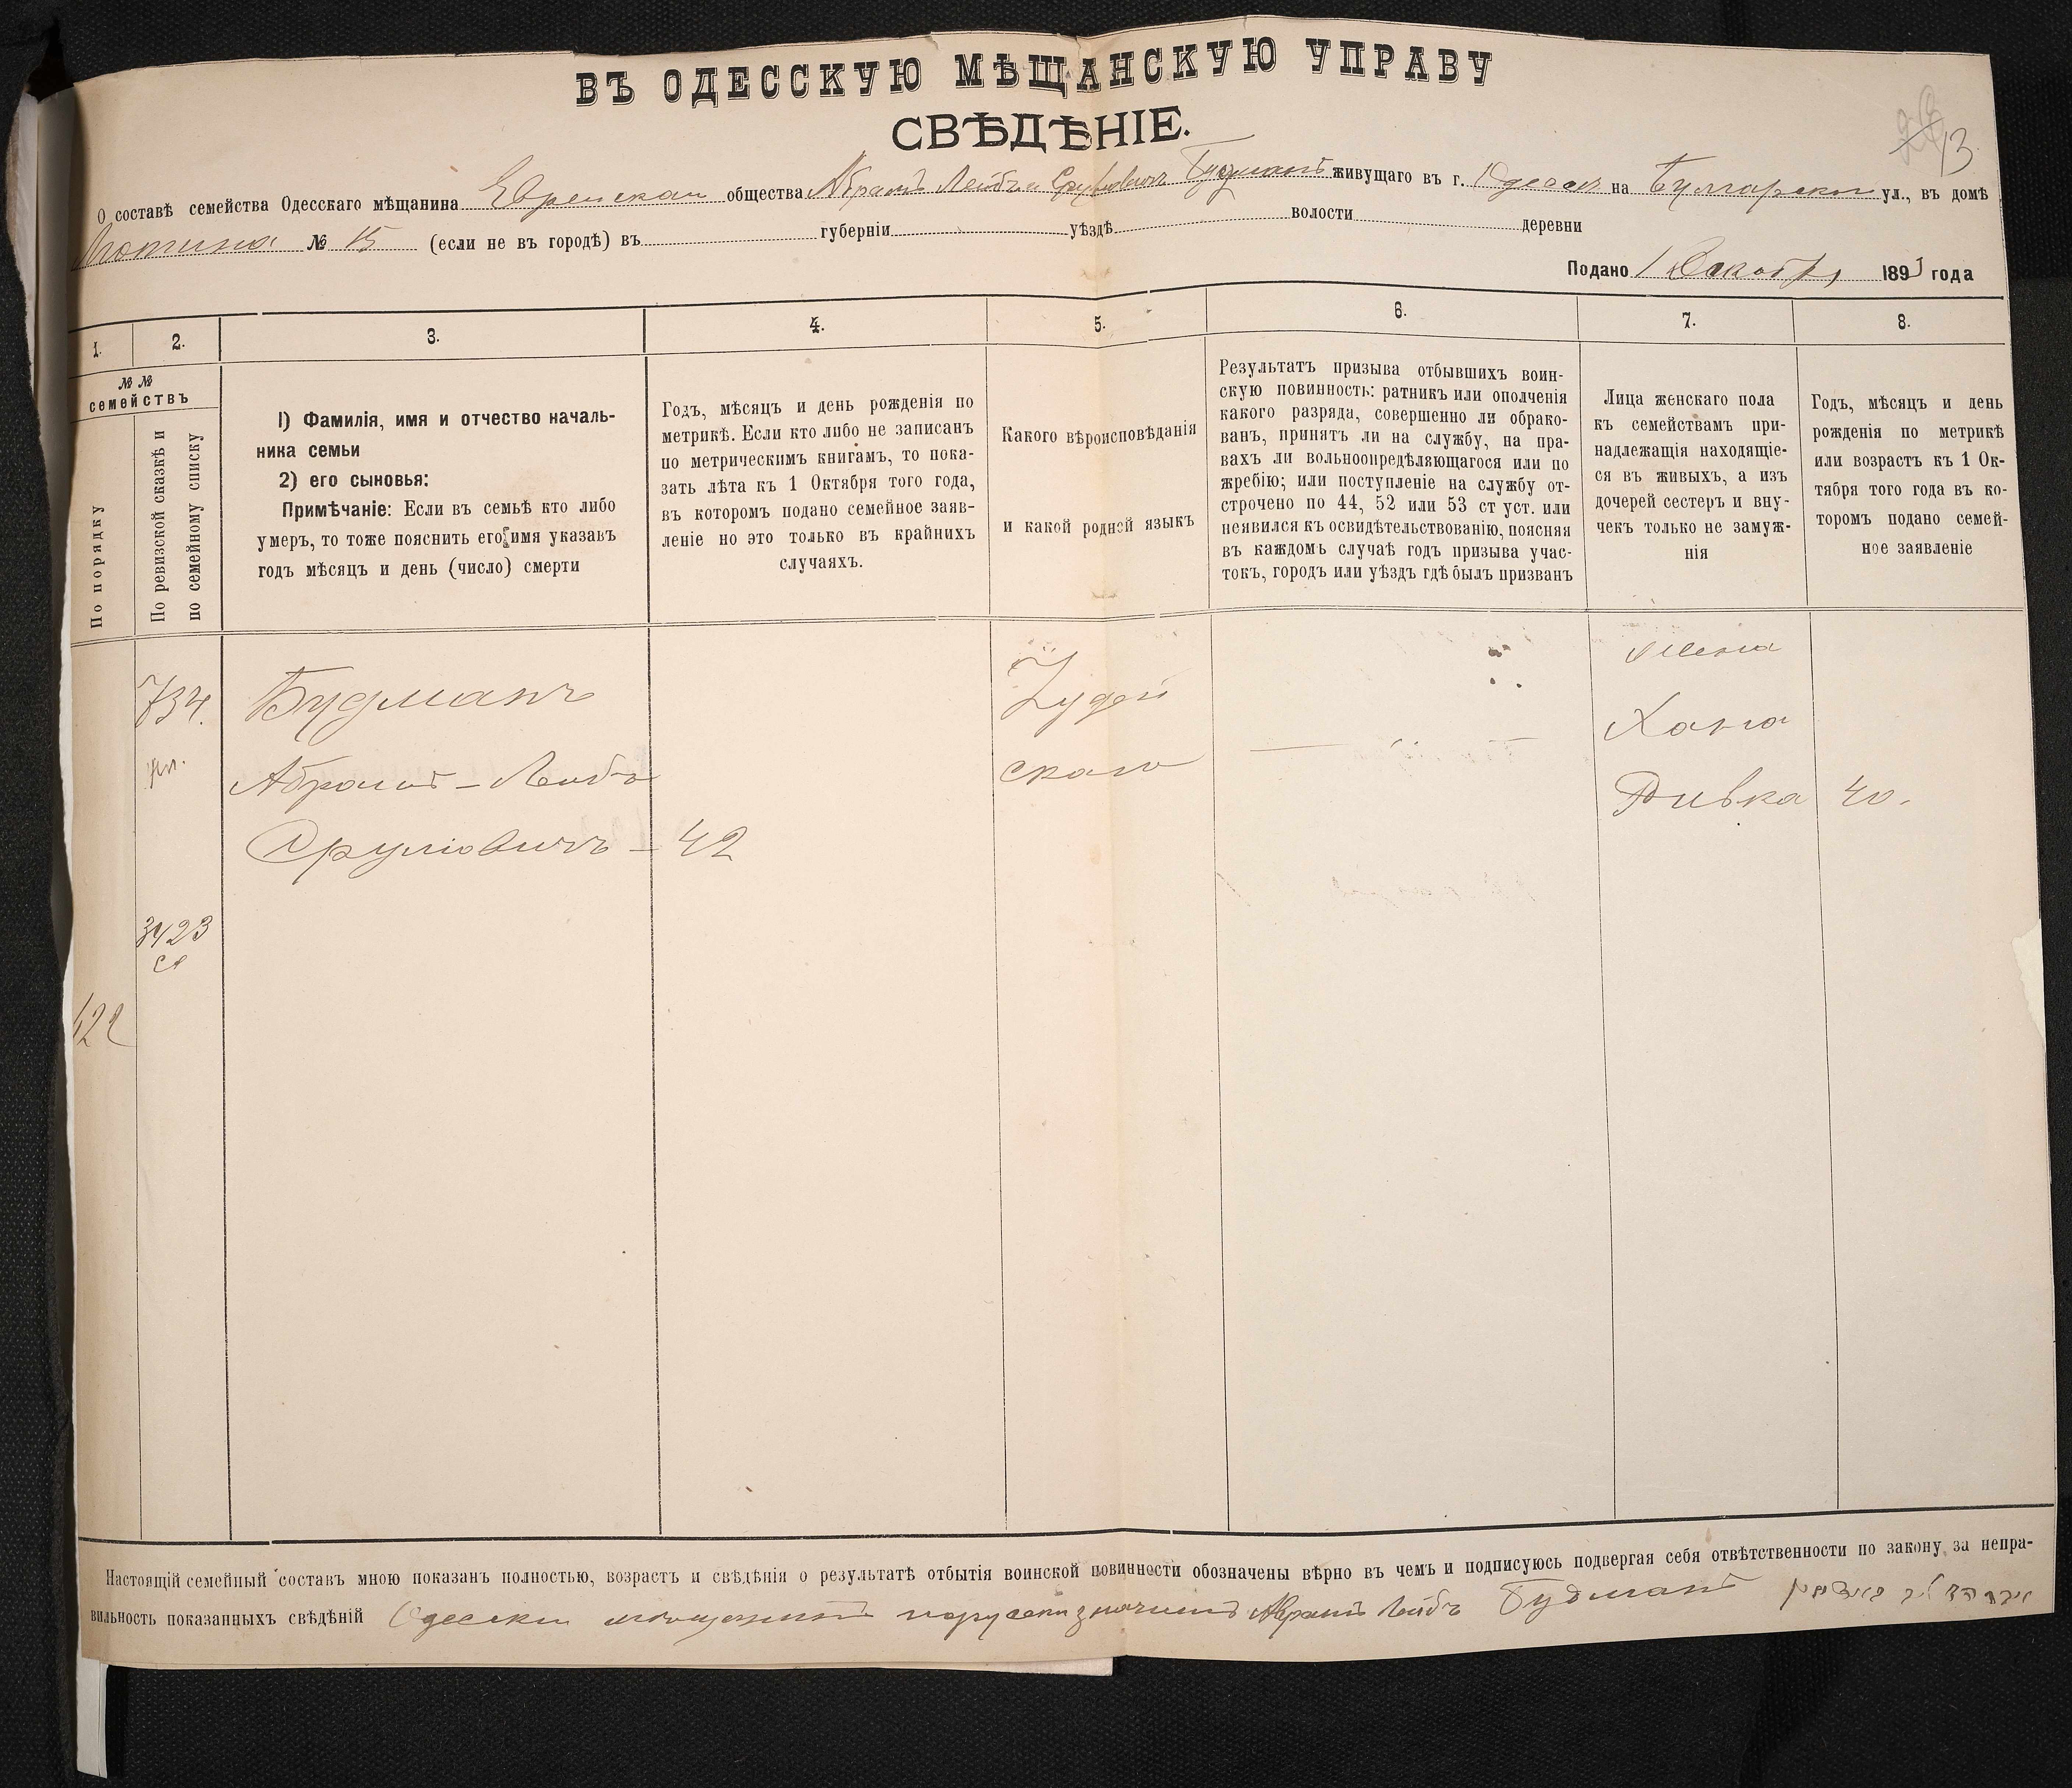 ВЪ ОДЕССКУЮ МѢЩАНСКУЮ УПРАВУ
СВѢДѢНІЕ.
13
О составѣ семейства Одесскаго мѣщанина Еврейскаго общества Абрамъ Лейбъ Срулевичъ Будманъ живущаго въ г. Одессѣ на Булгарской ул., въ домѣ
№ 15 (если не въ городѣ) въ губерніи уѣздѣ волости деревни
Подано 1 189 года
1. 2. 3. 4. 5. 6. 7. 8.
№ №
семействъ
По порядку
По ревизской сказкѣ и
по семейному списку
1) Фамилія, имя и отчество началь-
ника семьи
2) его сыновья:
Примѣчаніе: Если въ семьѣ кто либо
умеръ, то тоже пояснить его имя указавъ
годъ мѣсяцъ и день (число) смерти
Годъ, мѣсяцъ и день рожденія по
метрикѣ. Если кто либо не записанъ
по метрическимъ книгамъ, то пока-
зать лѣта къ 1 Октября того года,
въ которомъ подано семейное заяв-
леніе но это только въ крайнихъ
случаяхъ.
Какого вѣроисповѣданія
и какой родной языкъ
Результатъ призыва отбывшихъ воин-
скую повинность: ратникъ или ополченія
какого разряда, совершенно ли обрако-
ванъ, принятъ ли на службу, на пра-
вахъ ли вольноопредѣляющагося или по
жребію; или поступленіе на службу от-
строчено по 44, 52 или 53 ст уст. или
неявился къ освидѣтельствованію, поясняя
въ каждомъ случаѣ годъ призыва учас-
токъ, городъ или уѣздъ гдѣ былъ призванъ
Лица женскаго пола
къ семействамъ при-
надлежащія находящіе-
ся въ живыхъ, а изъ
дочерей сестеръ и вну-
чекъ только не замуж-
нія
Годъ, мѣсяцъ и день
рожденія по метрикѣ
или возрастъ къ 1 Ок-
тября того года въ ко-
торомъ подано семей-
ное заявленіе
734.
Будманъ
Абрамъ - Лейбъ
Срулiовичъ - 42
Iудей
скаго
Жена
Хана
Ривка 40.
3423
422
Настоящій семейный составъ мною показанъ полностью, возрастъ и свѣдѣнія о результатѣ отбытія воинской повинности обозначены вѣрно въ чемъ и подписуюсь подвергая себя отвѣтственности по закону за непра-
вильность показанныхъ свѣдѣній Одесскій мѣщанинъ Абрамъ Лейбъ Будманъ